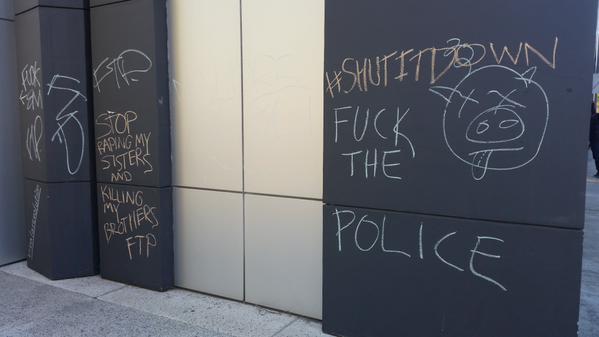 FUCK
FTP
FTP
STOP
RAPING MY
SISTERS
AND
KILLING
MY
BROTHERS
FTP
#SHUTITDOWN
FUCK
THE
POLICE